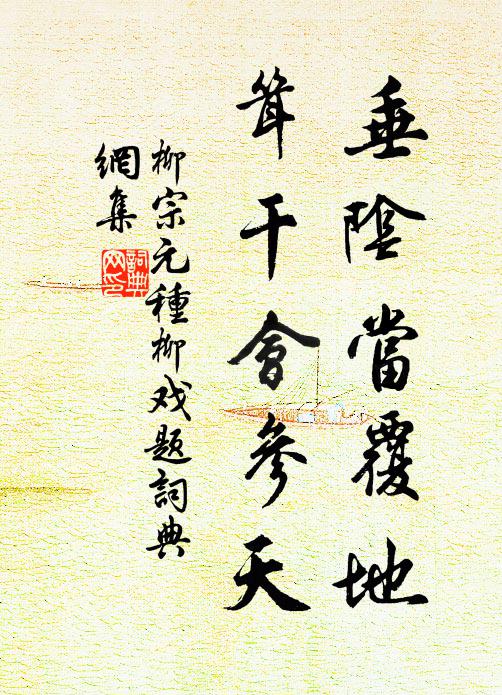 垂陰當覆地
耸干會參天
柳宗元種柳戏题詞典
網集
詞典
网印